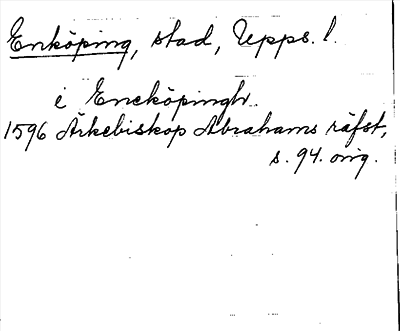 Enköping, stad, Upps. l.
i Eneköpingh
1596 Ärkebiskop Abrahams räfst,
s. 94. orig.